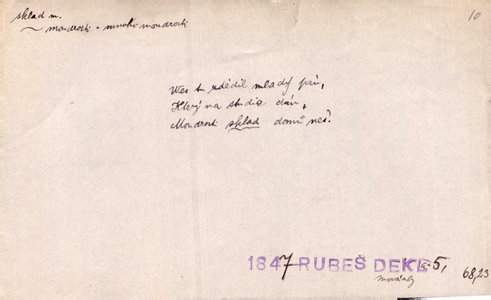 sklad m.
10
~ moudrosti = mnoho moudrosti
Ves tu zdědil mladý pán,
Který na studie dán,
Moudrosti sklad domů nes'.
1847 RUBEŠ DEKL a-5,
68,23